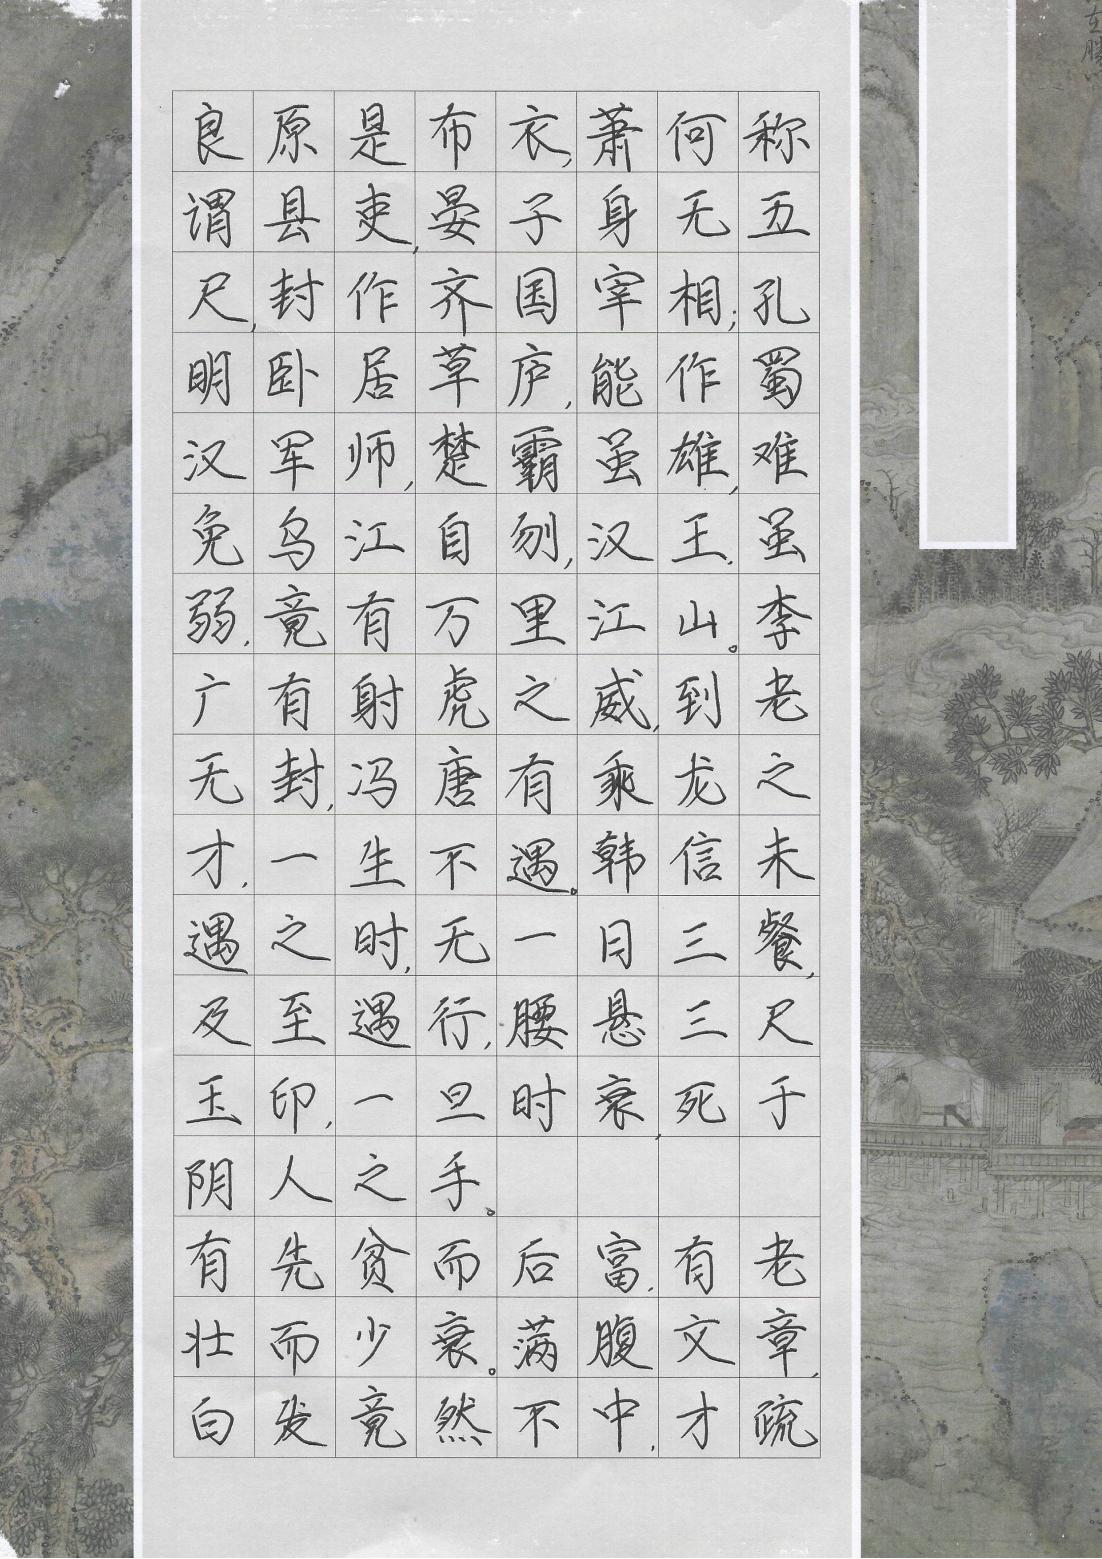 良原是布衣,萧何称
谓县吏,晏子身无五
尺,封作齐国宰相;孔
明卧居草庐,能作蜀
汉军师,楚霸虽雄,难
免乌江自刎,汉王,虽
弱,竟有万里江山。李
广有射虎之威,到老
无封,冯唐有乘龙之
才,一生不遇。韩信未
遇之时,无一日三餐,
及至遇行,腰悬三尺
玉印,一旦时衰,死于
阴人之手。
有先贫而后富,有老
壮而少衰。满腹文章,
白发竟然不中,才疏